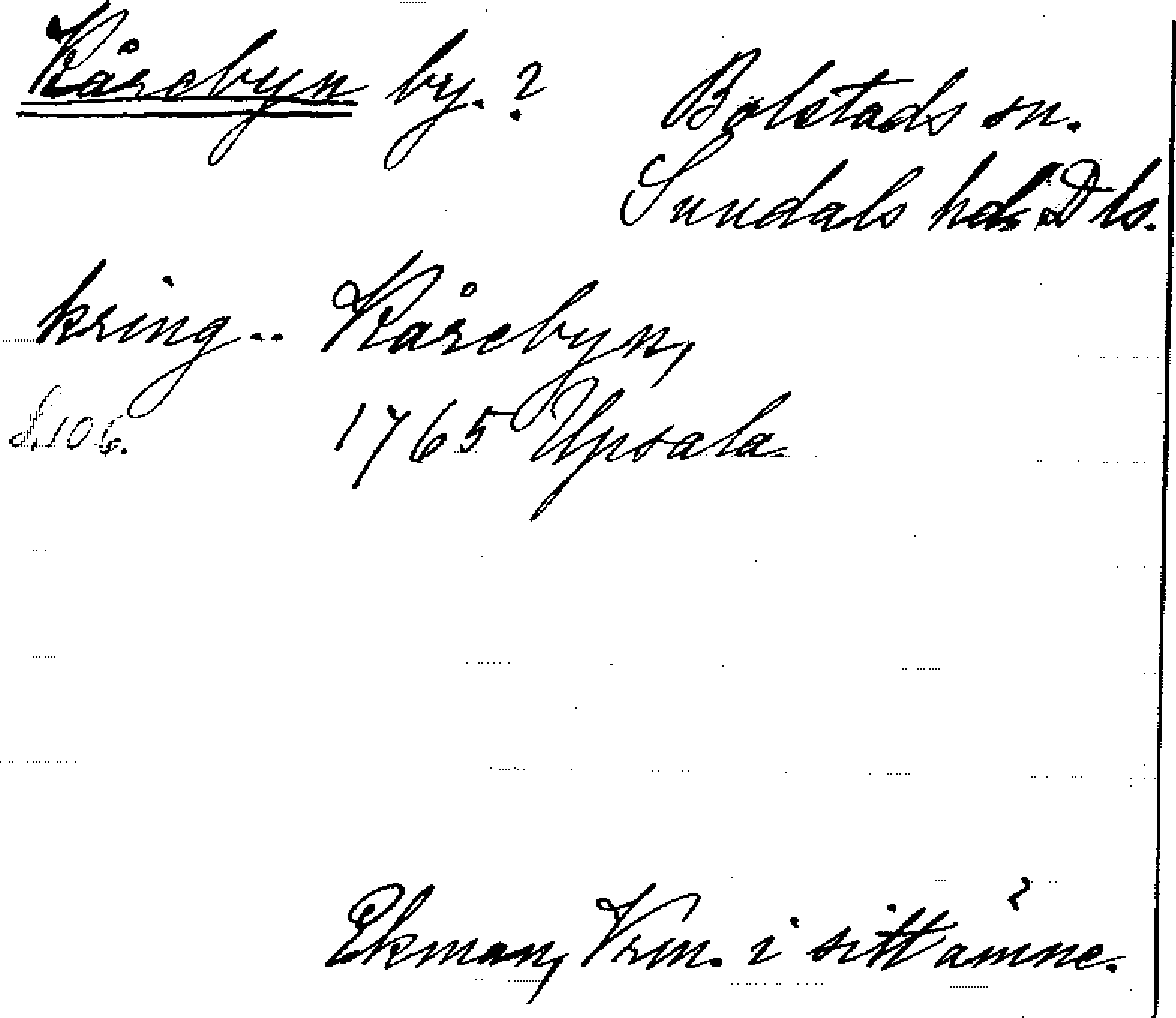 Kårebyn by.? Bolstads sn.
Sundals hd. Dls.
kring.. Kårebyn,
S. 106. 1765 Upsala
Ekman, Vrm. i sitt ämne.
?